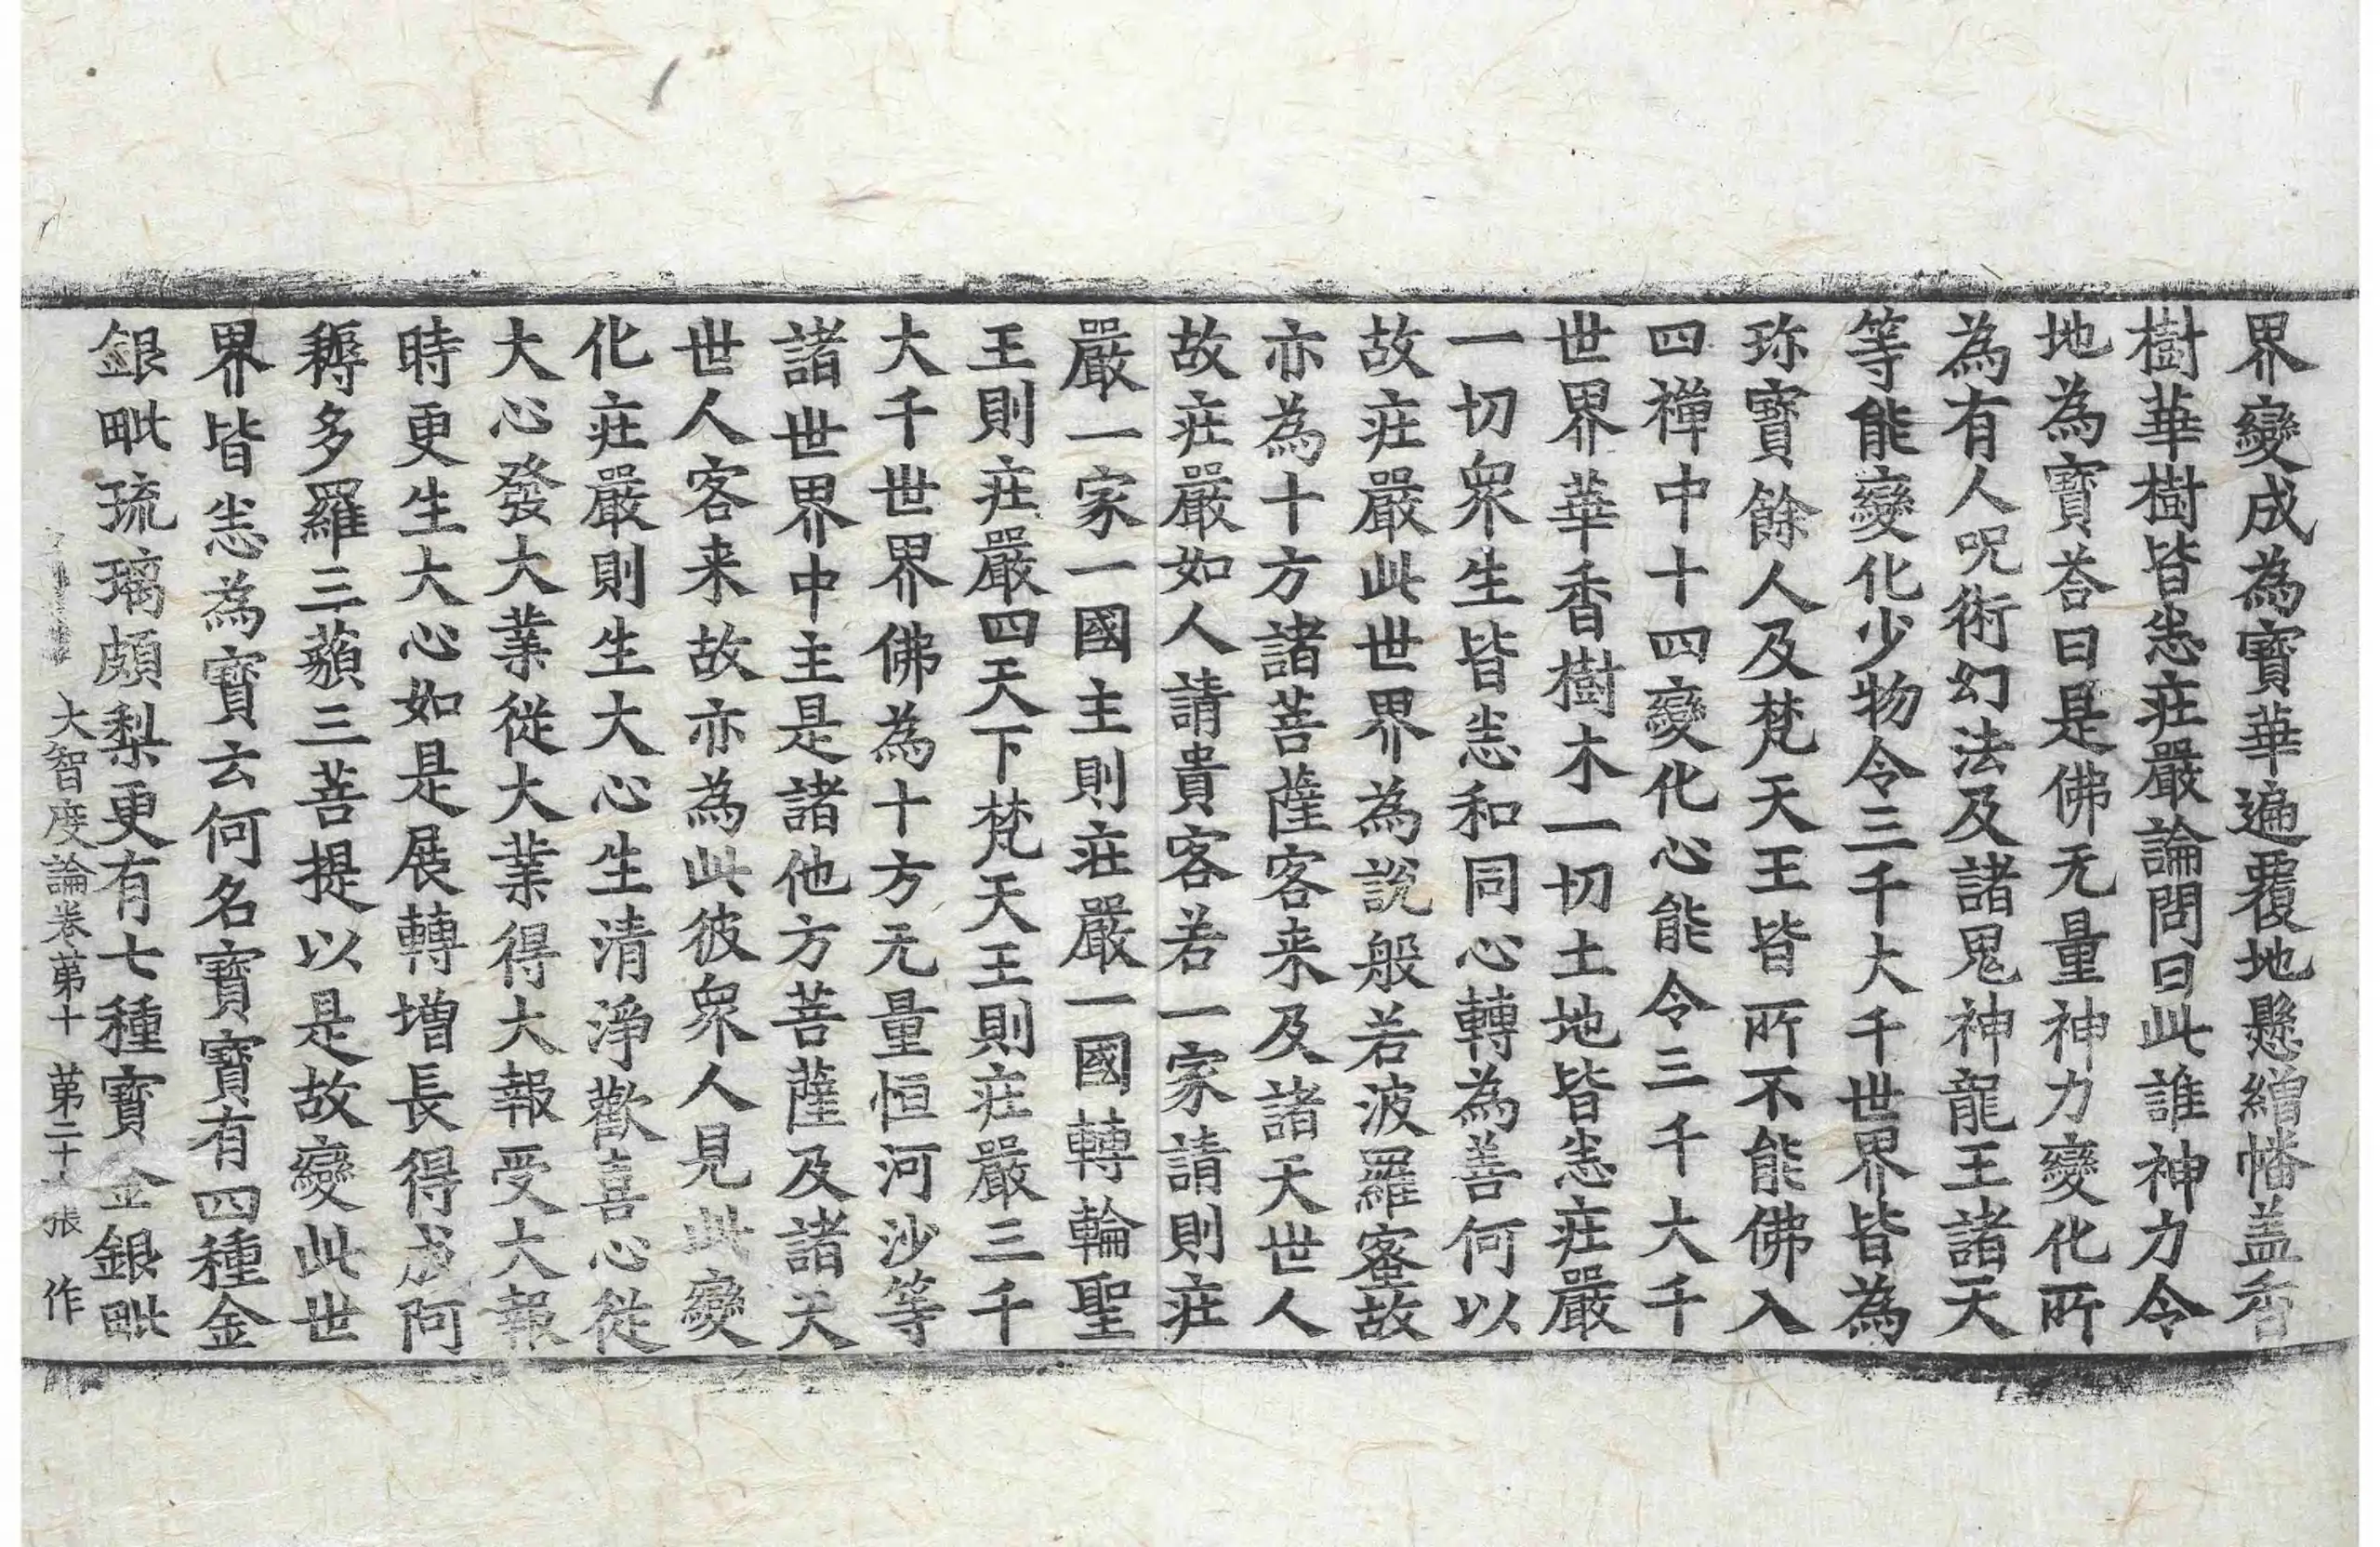 界變成為寶華遍覆地懸繒幡盖香
樹華樹皆悉莊嚴論問曰此誰神力令
地為寶荅曰是佛无量神力變化所
為有人呪術幻法及諸鬼神龍王諸天
等能變化少物令三千大千世界皆為
珎寶餘人及梵天王皆所不能佛入
四禪中十四變化心能令三千大千
世界華香樹木一切土地皆悉莊嚴
一切衆生皆悉和同心轉為善何以
故莊嚴此世界為說般若波羅蜜故
亦為十方諸菩薩客来及諸天世人
故莊嚴如人請貴客若一家請則莊
嚴一家一國主則莊嚴一國轉輪聖
王則莊嚴四天下梵天王則莊嚴三千
大千世界佛為十方无量恒河沙等
諸世界中主是諸他方菩薩及諸天
世人客来故亦為此彼衆人見此變
化莊嚴則生大心生清淨歡喜心從
大心發大業從大業得大報受大報
時更生大心如是展轉增長得成阿
耨多羅三藐三菩提以是故變此世
界皆悉為寶云何名寶寶有四種金
銀毗琉璃頗梨更有七種寶金銀毗
大智度論卷第十 第二十張 作